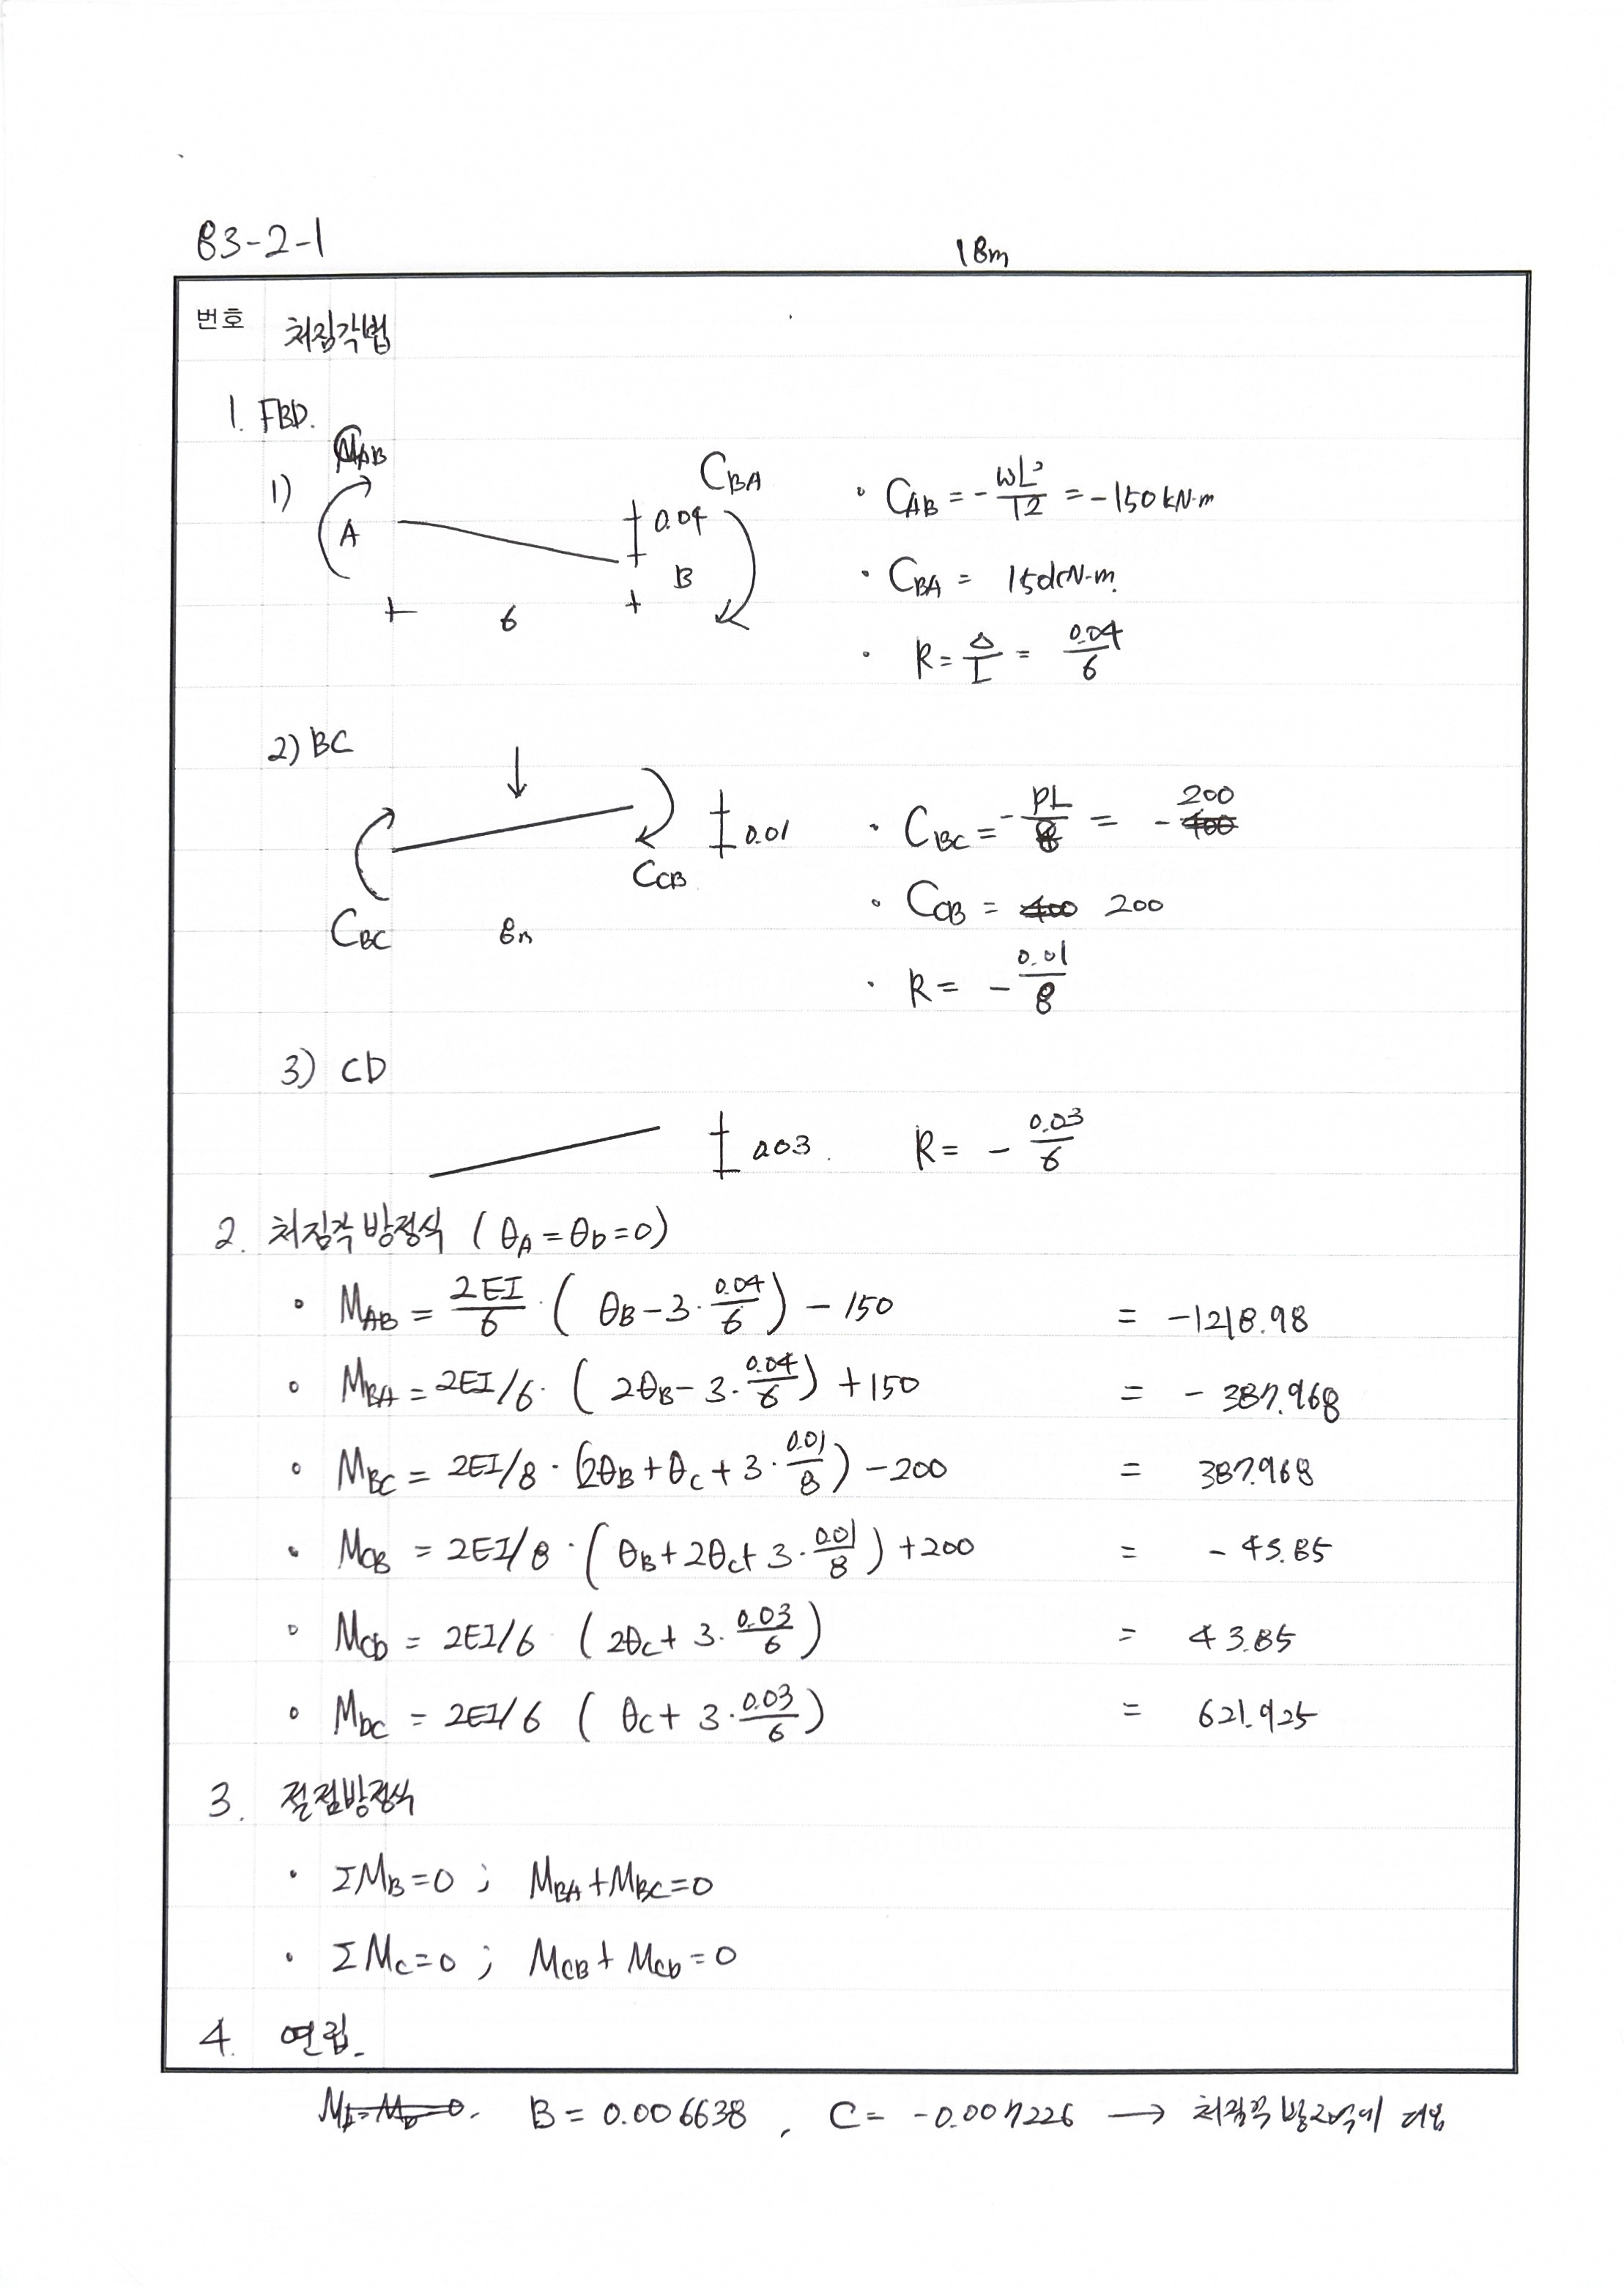 83-2-1
18m
번호 처짐각법
1. FBD.
1)
M_AB
A
0.04
B
6
C_BA
· C_AB = -wL²/12 = -150kN·m
· C_BA = 150kN·m.
· R = Δ/L = 0.04/6
2) BC
C_BC
8m
C_CB
0.01
· C_BC = -PL/8 = -200
· C_CB = 200
· R = -0.01/8
3) CD
0.03
R = -0.03/6
2. 처짐각 방정식 (θ_A = θ_D = 0)
· M_AB = 2EI/6 · (θ_B - 3·0.04/6) - 150 = -1218.98
· M_BA = 2EI/6 · (2θ_B - 3·0.04/6) + 150 = -387.968
· M_BC = 2EI/8 · (2θ_B + θ_C + 3·0.01/8) - 200 = 387.968
· M_CB = 2EI/8 · (θ_B + 2θ_C + 3·0.01/8) + 200 = -43.85
· M_CD = 2EI/6 (2θ_C + 3·0.03/6) = 43.85
· M_DC = 2EI/6 (θ_C + 3·0.03/6) = 621.925
3. 절점방정식
· ΣM_B=0 ; M_BA+M_BC=0
· ΣM_C=0 ; M_CB+M_CD=0
4. 연립.
B = 0.006638 , C = -0.007226 → 처짐각 방정식에 대입